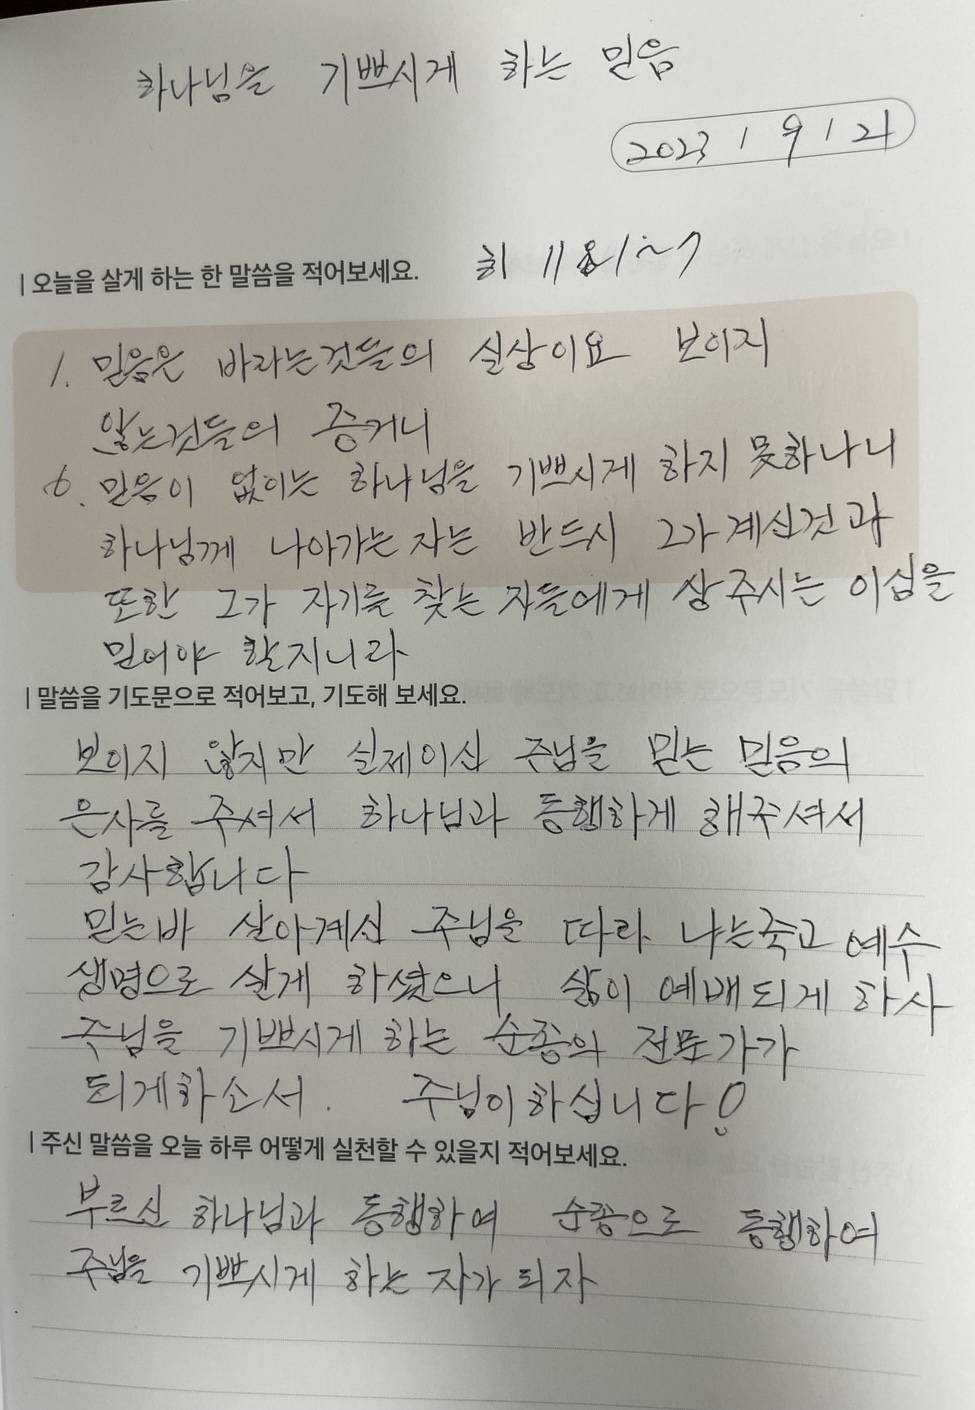 하나님을 기쁘시게 하는 믿음
2023 / 9 / 21
| 오늘을 살게 하는 한 말씀을 적어보세요. 히 11:1~7
1. 믿음은 바라는것들의 실상이요 보이지
않는것들의 증거니
6. 믿음이 없이는 하나님을 기쁘시게 하지 못하나니
하나님께 나아가는 자는 반드시 그가 계신것과
또한 그가 자기를 찾는 자들에게 상주시는 이심을
믿어야 할지니라
| 말씀을 기도문으로 적어보고, 기도해 보세요.
보이지 않지만 실제이신 주님을 믿는 믿음의
은사를 주셔서 하나님과 동행하게 해주셔서
감사합니다
믿는바 살아계신 주님을 따라 나는죽고 예수
생명으로 살게 하셨으니 삶이 예배되게 하사
주님을 기쁘시게 하는 순종의 전문가가
되게하소서. 주님이하십니다!
| 주신 말씀을 오늘 하루 어떻게 실천할 수 있을지 적어보세요.
부르신 하나님과 동행하여 순종으로 동행하여
주님을 기쁘시게 하는 자가 되자